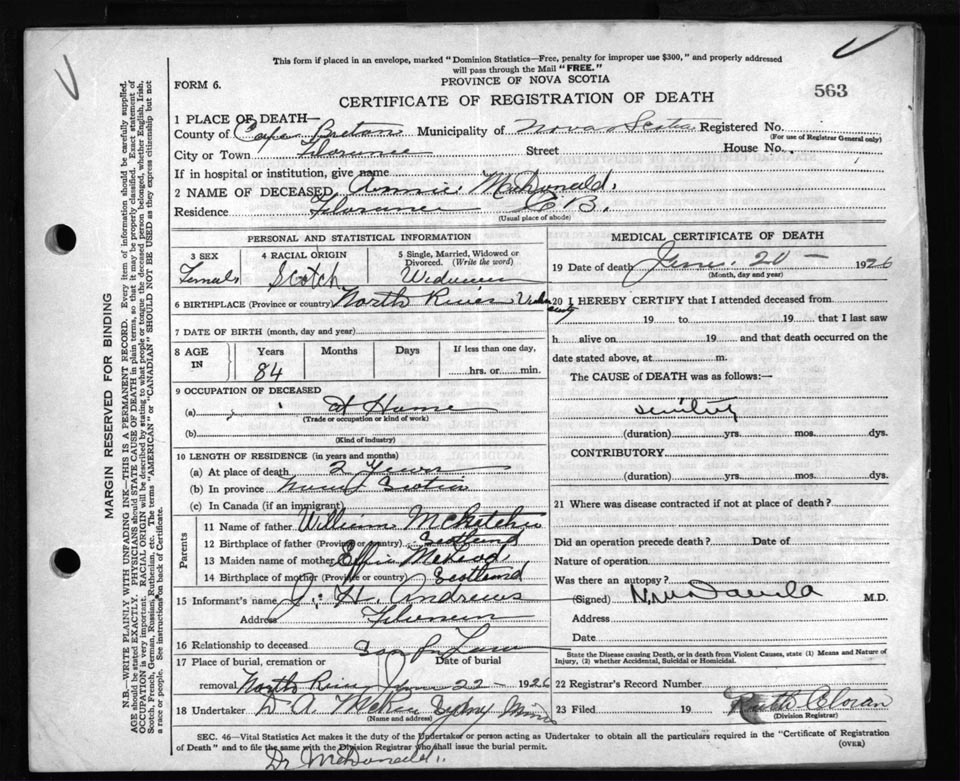 This form if placed in an envelope, marked "Dominion Statistics—Free, penalty for improper use $300," and properly addressed
will pass through the Mail "FREE."
FORM 6.
PROVINCE OF NOVA SCOTIA
563
CERTIFICATE OF REGISTRATION OF DEATH
1 PLACE OF DEATH—
County of Cape Breton Municipality of Nova Scotia Registered No.
(For use of Registrar General only)
City or Town Florence Street House No.
If in hospital or institution, give name
2 NAME OF DECEASED Annie McDonald.
Residence Florence C B.
(Usual place of abode)
PERSONAL AND STATISTICAL INFORMATION
3 SEX 4 RACIAL ORIGIN 5 Single, Married, Widowed or Divorced. (Write the word)
Female Scotch Widow
6 BIRTHPLACE (Province or country) North River Victoria County
7 DATE OF BIRTH (month, day and year)
8 AGE IN Years Months Days If less than one day,
84 hrs. or min.
9 OCCUPATION OF DECEASED
(a) at Home
(Trade or occupation or kind of work)
(b)
(Kind of industry)
10 LENGTH OF RESIDENCE (in years and months)
(a) At place of death 2 Years
(b) In province Nova Scotia
(c) In Canada (if an immigrant)
Parents
11 Name of father William
12 Birthplace of father (Province or country) Scotland
13 Maiden name of mother Effie McLeod
14 Birthplace of mother (Province or country) Scotland
15 Informant's name J. H. Andrews
Address Florence
16 Relationship to deceased Son in Law
17 Place of burial, cremation or Date of burial
removal North River June 22 - 1926
18 Undertaker D A Sydney Mines
(Name and address)
MEDICAL CERTIFICATE OF DEATH
19 Date of death June. 20 - 1926
(Month, day and year)
20 I HEREBY CERTIFY that I attended deceased from
19 to 19 that I last saw
h alive on 19 and that death occurred on the
date stated above, at m.
The CAUSE of DEATH was as follows:—
senility
(duration) yrs. mos. dys.
CONTRIBUTORY
(duration) yrs. mos. dys.
21 Where was disease contracted if not at place of death?
Did an operation precede death? Date of
Nature of operation
Was there an autopsy?
(Signed) M.D.
Address
Date
State the Disease causing Death, or in death from Violent Causes, state (1) Means and Nature of
Injury, (2) whether Accidental, Suicidal or Homicidal.
22 Registrar's Record Number
23 Filed 19 Ruth Cloran
(Division Registrar)
SEC. 46—Vital Statistics Act makes it the duty of the Undertaker or person acting as Undertaker to obtain all the particulars required in the "Certificate of Registration
of Death" and to file the same with the Division Registrar who shall issue the burial permit.
(OVER)
Dr McDonald.
MARGIN RESERVED FOR BINDING
N.B.—WRITE PLAINLY WITH UNFADING INK—THIS IS A PERMANENT RECORD. Every item of information should be carefully supplied.
AGE should be stated EXACTLY. PHYSICIANS should STATE CAUSE OF DEATH in plain terms, so that it may be properly classified. Exact statement of
OCCUPATION is very important. RACIAL ORIGIN will be described by stating to what people or tongue the deceased person belonged, whether English, Irish,
Scotch, French, German, Russian, Ruthenian, etc. The terms "AMERICAN" or "CANADIAN" SHOULD NOT BE USED as they express citizenship but not
a race or people. See instructions on back of Certificate.